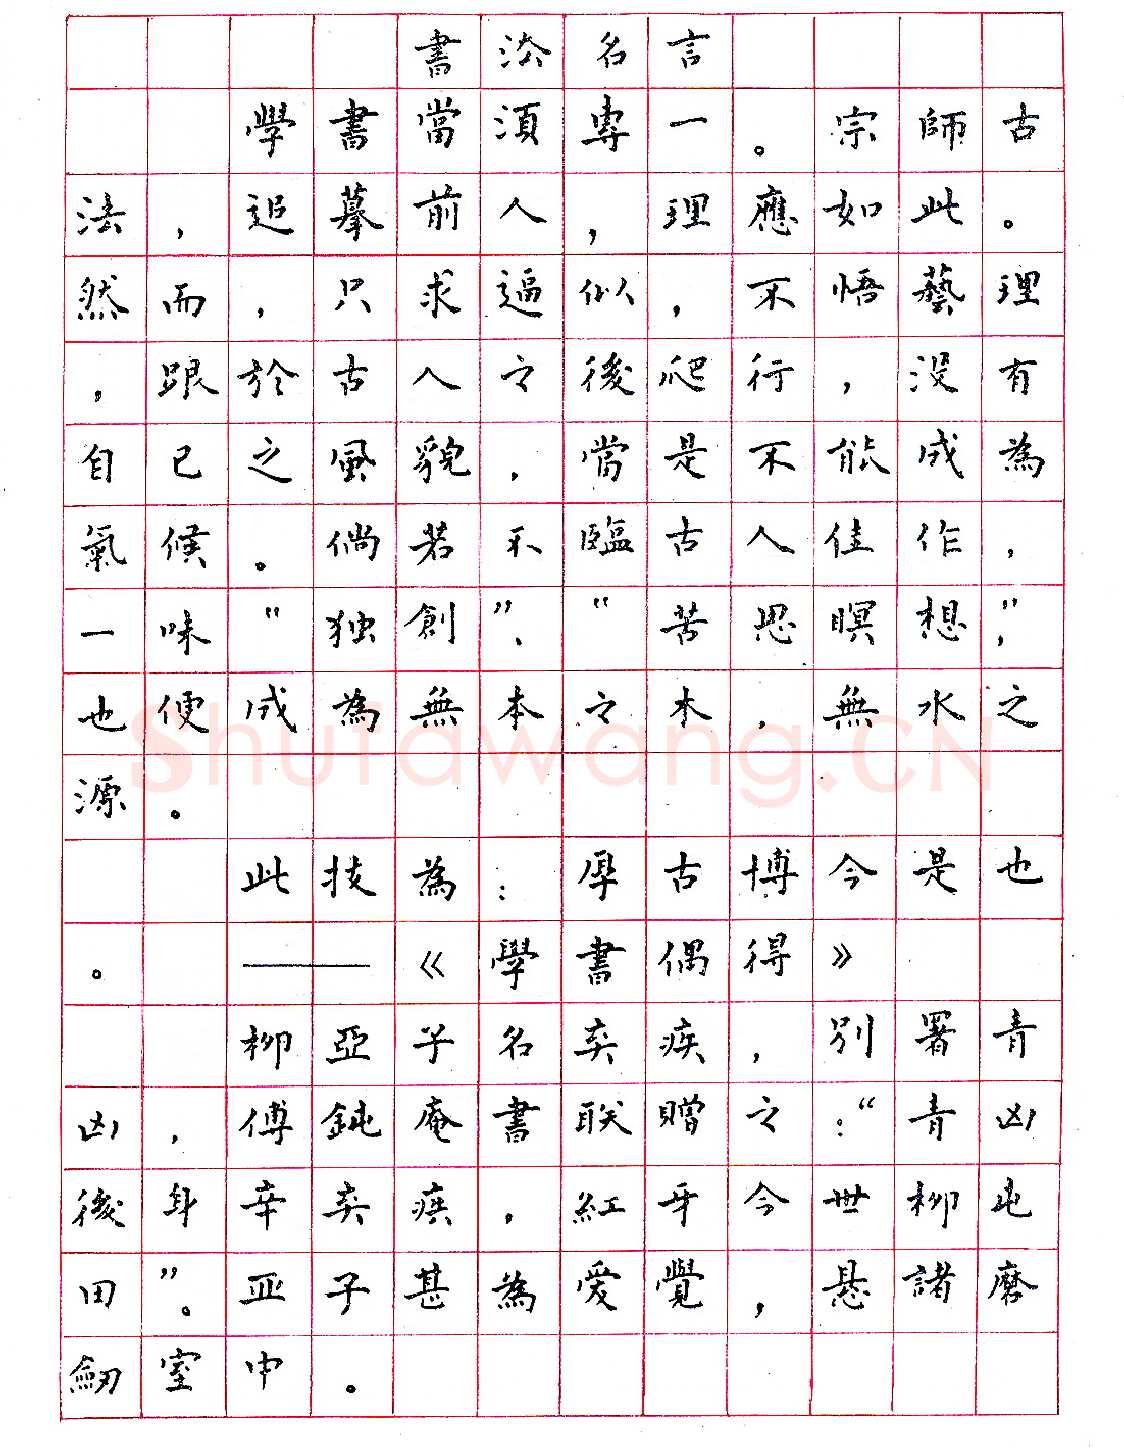 書法名言
學書當須專一。宗師古
法，追摹前人，理應如此。
然而，只求逼似，不悟藝理
，跟於古人之後爬行，沒有
自己之風貌，當是不能成為
氣候。倘若不臨古人佳作，
一味“独創”、“苦思瞑想”，
也便成為無本之木，無水之
源。
此技為：厚古博今是也
。——《學書偶得》
柳亞子名弃疾，別署青
凶，傅鈍庵書联贈之：“青凶
後身辛弃疾，紅牙今世柳屯
田”。亚子甚為愛覺，懸諸磨
劒室中。
Shufawang.CN